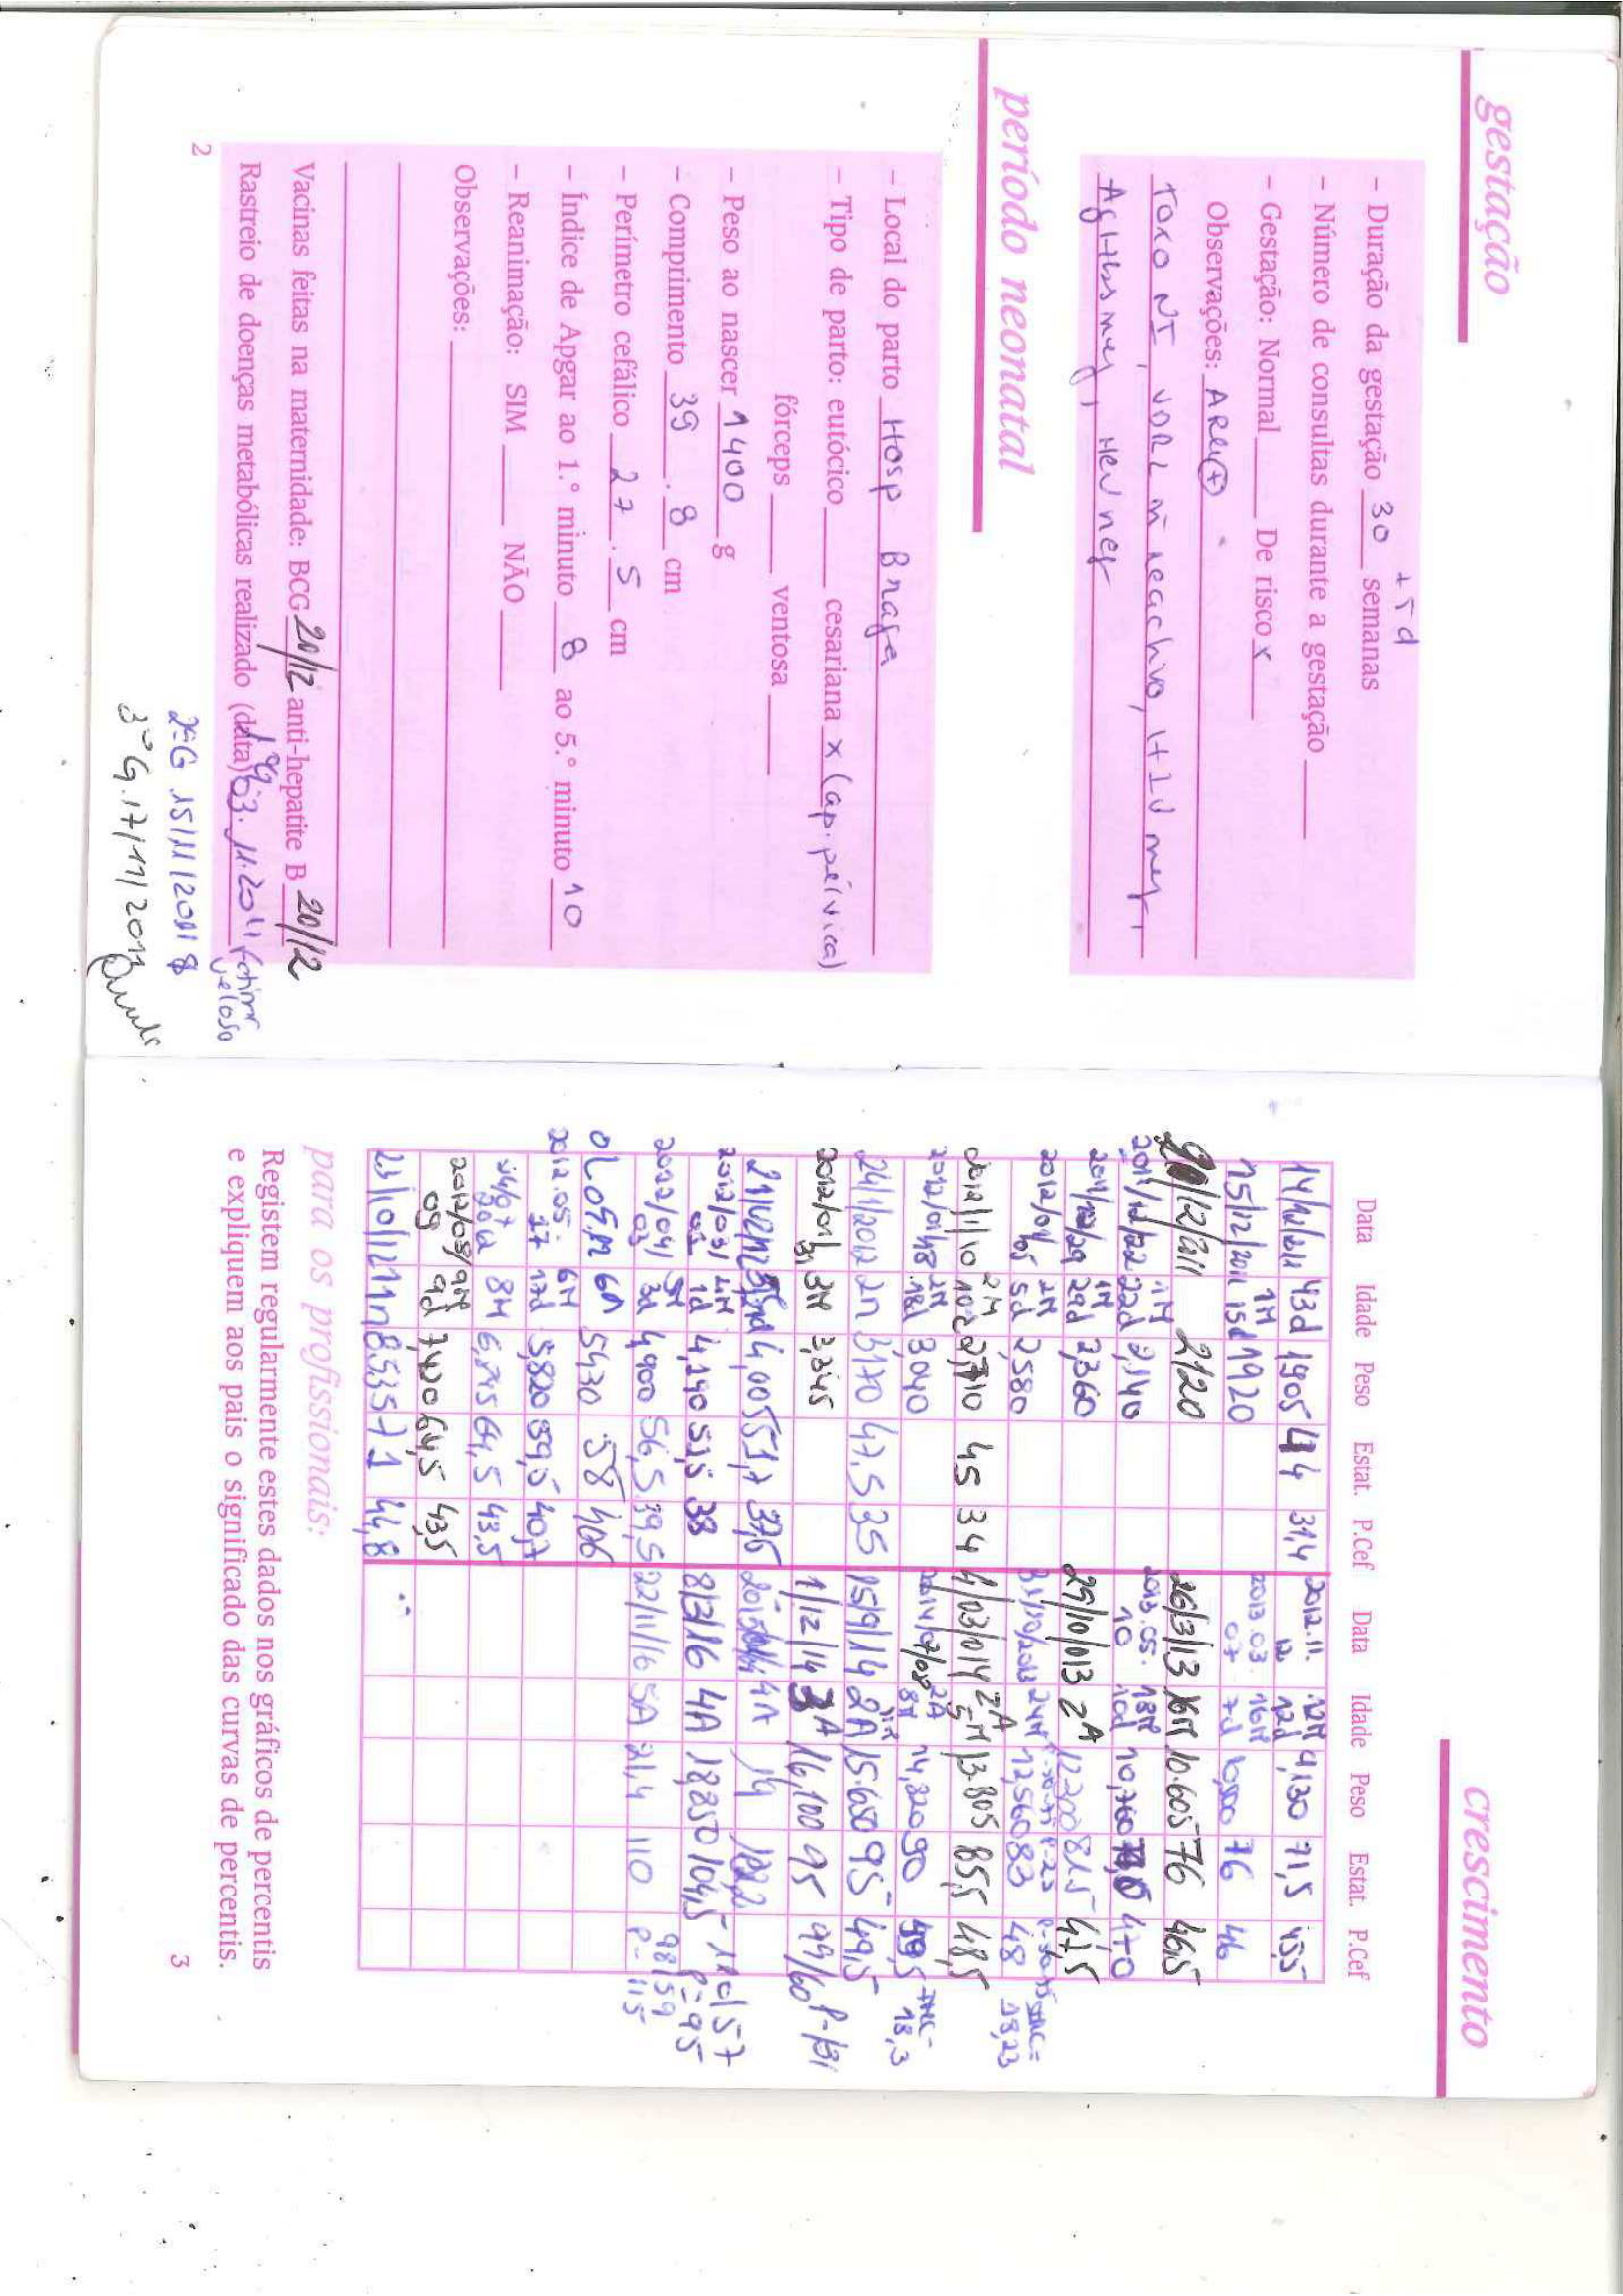 gestação
+ 5 d
– Duração da gestação 30 semanas
– Número de consultas durante a gestação
– Gestação: Normal De risco x
Observações: AReu(+)
Toxo NI, VDRL ñ reactivo, HIV neg,
AgHBs neg, HCV neg
período neonatal
– Local do parto Hosp Braga
– Tipo de parto: eutócico cesariana x (ap. pélvica)
fórceps ventosa
– Peso ao nascer 1400 g
– Comprimento 39 . 8 cm
– Perímetro cefálico 27 . 5 cm
– Índice de Apgar ao 1.º minuto 8 ao 5.º minuto 10
– Reanimação: SIM NÃO
Observações:
Vacinas feitas na maternidade: BCG 20/12 anti-hepatite B 20/12
Rastreio de doenças metabólicas realizado (data) 03.11.2011 Fátima Veloso
2ª G 15/11/2011
3ª G. 17/11/2011
2
crescimento
Data Idade Peso Estat. P.Cef Data Idade Peso Estat. P.Cef
14/12/2011 43d 1905 44 31,4 2012.11.12 12M 12d 71,5 45,5
15/12/2011 1M 15d 1920 2013.03.07 16M 7d 76 46
20/12/2011 2120 26/3/13 16M 10.605 76 46,5
2011/12/22 1M 22d 2,140 2013.05.10 18M 10d 10,760 47,0
2011/12/29 1M 29d 2,360 29/10/013 2A 12300 81.5 47,5
2012/01/05 2M 5d 2,580 31/10/2013 24M 12,560 83 48
2012/1/10 2M 10d 2,710 45 34 4/03/014 2A 5M 13.805 85,5 48,5
2012/01/18 2M 18d 3,040 2014/07/08 2A 8M 14,820 90 IMC- 18,3
24/1/2012 2n 3170 47,5 35 15/9/14 2A 11M 15.650 95 49,5
2012/01/31 3M 3,345 1/12/14 3A 16,100 95 99/60 P-131
21/02/12 4,005 51,7 37,5 4A
2012/03/01 4M 1d 4,190 51,5 38 8/3/16 4A 18,850 104,5 110/57 P=95
2012/04/03 5M 3d 4,900 56,5 39,5 22/11/16 5A 21,4 110 98/59 P-115
02.05.12 6M 5430 58 40,6
2012.05.17 6M 17d 5,820 59,5 40,7
8M 6,745 64,5 43,5
2012/08/09 9M 9d 7,420 64,5 43,5
23/0/12 11n 8.535 71 44,8
para os profissionais:
Registem regularmente estes dados nos gráficos de percentis
e expliquem aos pais o significado das curvas de percentis.
3